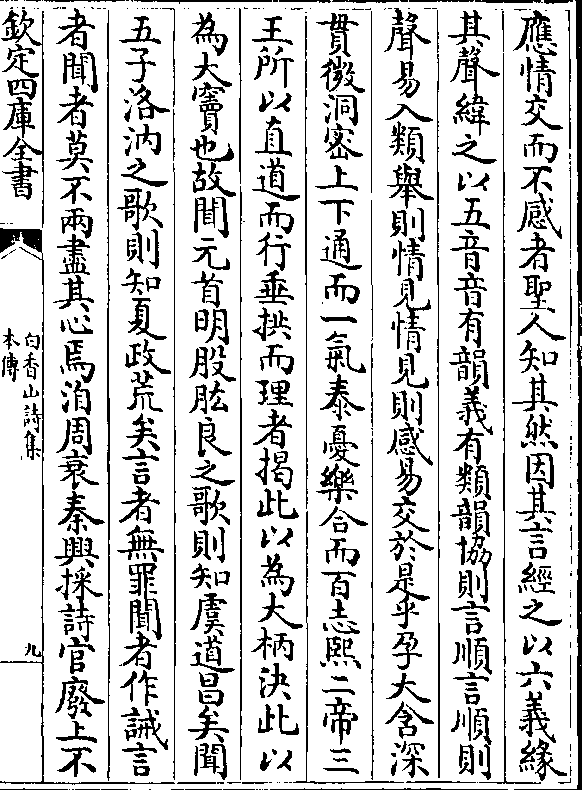 應情交而不感者聖人知其然因其言經之以六義緣
其聲緯之以五音音有韻義有類韻協則言順言順則
聲易入類舉則情見情見則感易交於是乎孕大含深
貫微洞宻上下通而一氣泰憂樂合而百志熙二帝三
王所以直道而行垂拱而理者揭此以為大柄決此以
為大竇也故聞元首明股肱良之歌則知虞道昌矣聞
五子洛汭之歌則知夏政荒矣言者無罪聞者作誡言
者聞者莫不兩盡其心焉洎周衰秦興採詩官廢上不
欽定四庫全書
白香山詩集
本傳
九